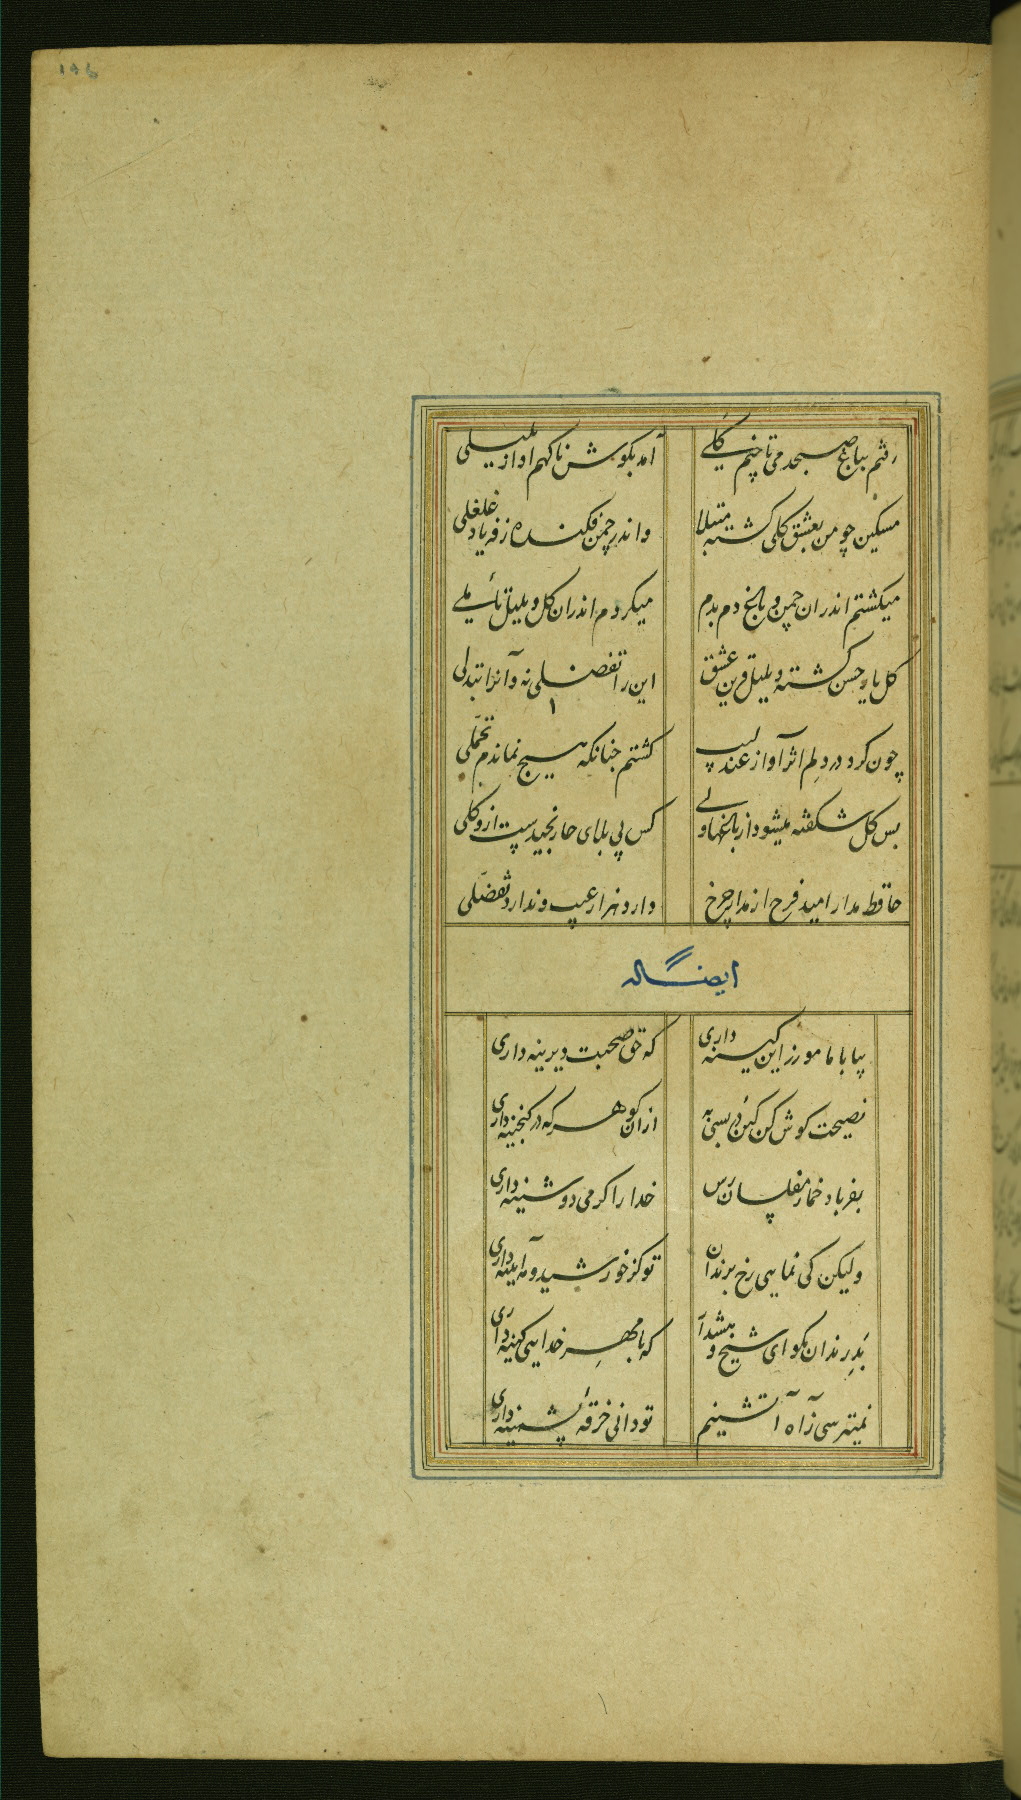 ۱۹۶
رفتم بباغ صبحدمی تا چنم گلی
آمد بگوش ناگهم آواز بلبلی
مسکین چو من بعشق گلی گشته مبتلا
واندر چمن فکنده ز فریاد غلغلی
میگشتم اندران چمن و باغ دم بدم
میکردم اندران گل و بلبل تأملی
گل یار حسن گشته و بلبل قرین عشق
این را تفضلی نه و آنرا تبدلی
چون کرد در دلم اثر آواز عندلیب
گشتم چنانکه هیچ نماندم تحملی
بس گل شکفته میشود از باغها ولی
کس بی بلای خار نچیدست ازو گلی
حافظ مدار امید فرح از مدار چرخ
دارد هزار عیب و ندارد تفضلی
ایضاً له
بیا با ما مورز این کینه داری
که حق صحبت دیرینه داری
نصیحت گوش کن کین در بسی به
ازان گوهر که در گنجینه داری
بفریاد خمار مفلسان رس
خدا را گر می دوشینه داری
ولیکن کی نمایی رخ برندان
تو کز خورشید و مه آیینه داری
بد رندان مگو ای شیخ و هشدار
که با مهر خدایی کینه داری
نمیترسی ز آه آتشینم
تو دانی خرقه پشمینه داری